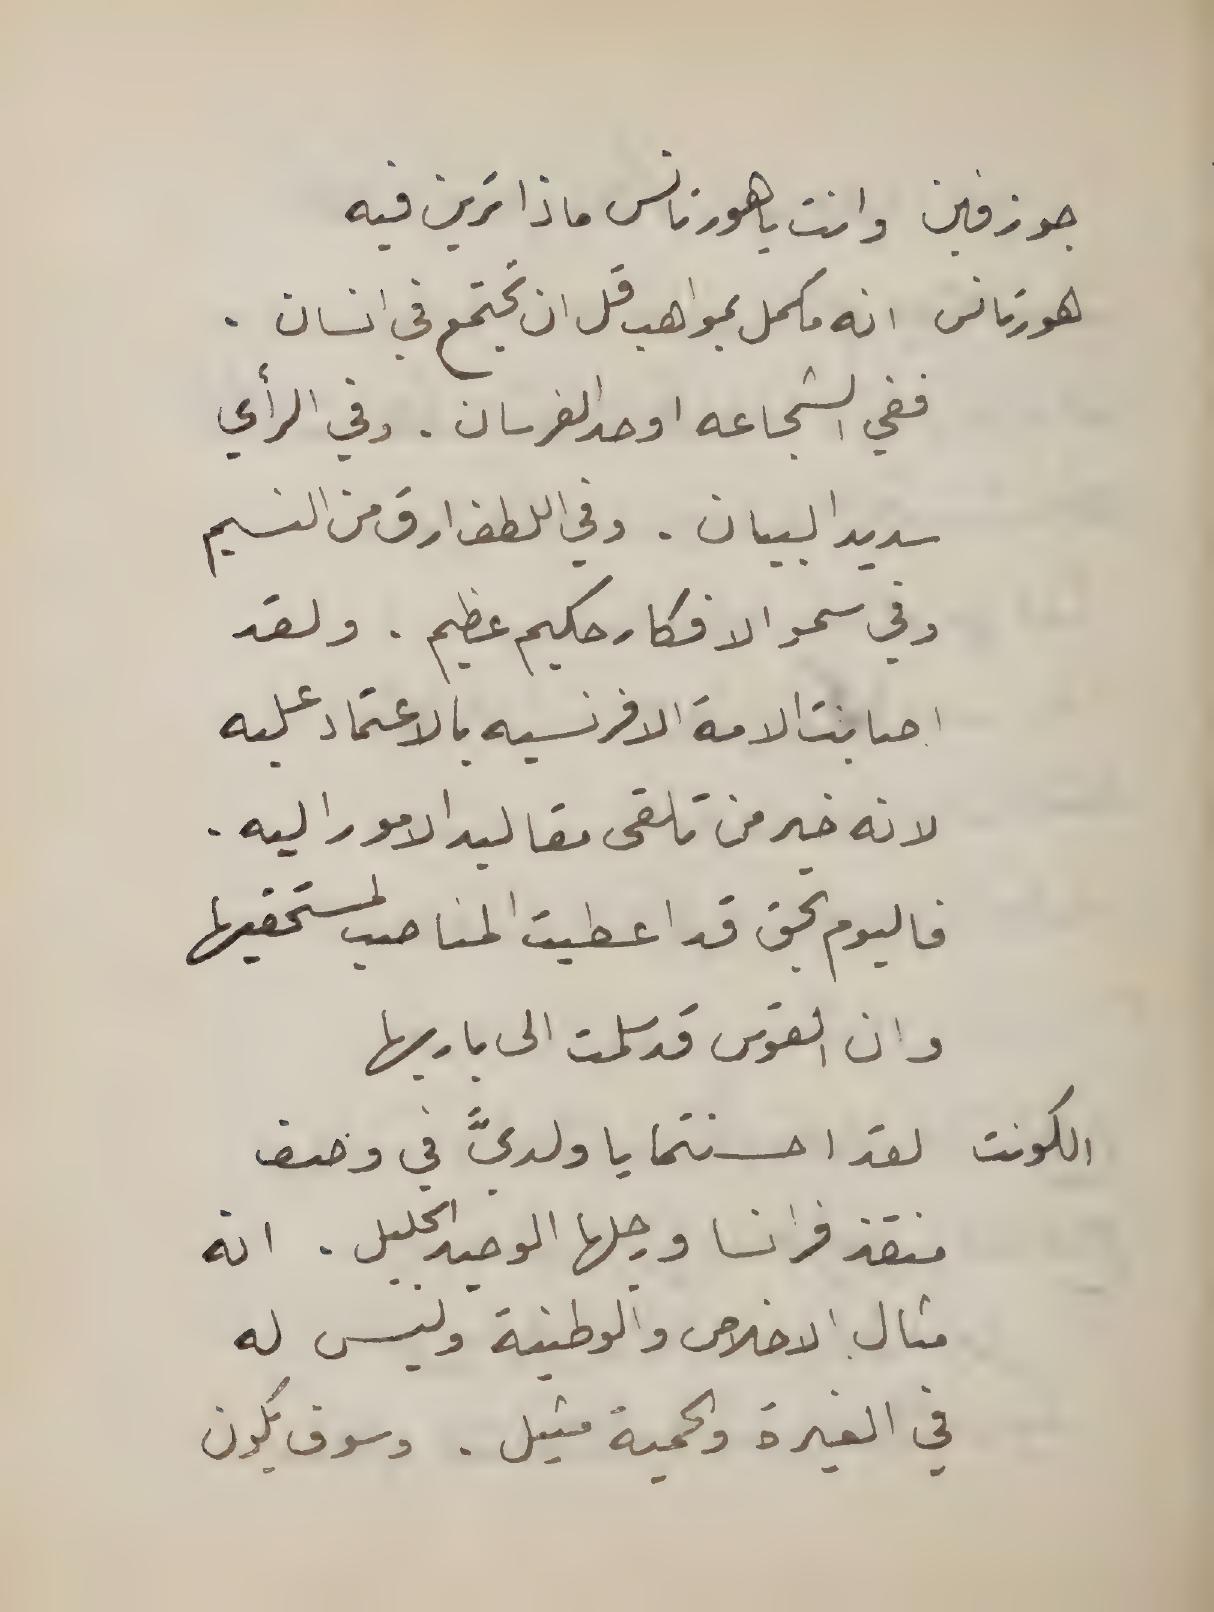 جوزفين وانت ياهورتانس ماذا ترين فيه
هورتانس انه مكمل بمواهب قل ان تجتمع في انسان .
ففي الشجاعه اوحد الفرسان . وفي الرأي
سديد البيان . وفي اللطف ارق من النسيم
وفي سمو الافكار حكيم عظيم . ولقد
اصابت الامة الافرنسيه بالاعتماد عليه
لانه خير من تلقى مقاليد الامور اليه .
فاليوم بحق قد اعطيت المناصب لمستحقيها
وان القوس قد سلمت الى باريها
الكونت لقد احسنتما يا ولديَّ في وصف
منقذ فرانسا ورجلها الوحيد الجليل . انه
مثال الاخلاص والوطنية وليس له
في الغيرة والحمية مثيل . وسوف يكون